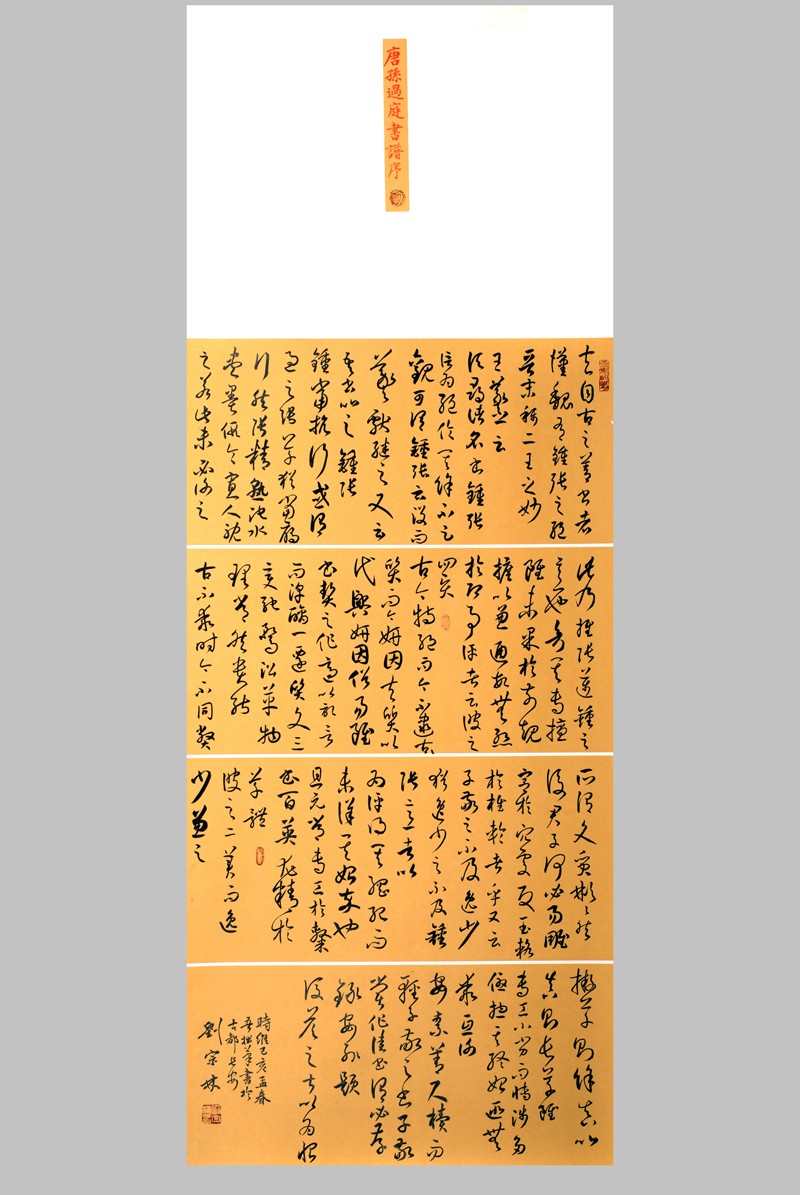 唐孫過庭書譜序
夫自古之善書者
漢魏有鍾張之絕
晉末稱二王之妙
王羲之云
頃尋諸名書鍾張
信為絕倫其餘不足
觀可謂鍾張云沒而
羲獻繼之又云
吾書比之鍾張
鍾當抗行或謂
過之張草猶當雁
行然張精熟池水
盡墨假令寡人耽
之若此未必謝之
此乃推張邁鍾之
意也考其專擅
雖未果於前規
摭以兼通故無慚
於即事評者云彼之
四賢
古今特絕而今不逮古
質而今妍因夫質以
代興妍因俗易雖
書契之作適以記言
而淳醨一遷質文三
變馳騖沿革物
理常然貴能
古不乖時今不同弊
所謂文質彬彬然
後君子何必易雕
宮於穴處反玉輅
於椎輪者乎又云
子敬之不及逸少
猶逸少之不及鍾
張意者以
為評得其綱紀而
未詳其始卒也
且元常專工於隸
書百英尤精於
草體
彼之二美而逸
少兼之
擬草則餘真比
真則長草雖
專工小劣而博涉多
優總其終始匪無
乖互謝
安素善尺牘而
輕子敬之書子敬
嘗作佳書謂必存
錄安題
後答之甚以為恨
時維己亥孟春
書於
古都長安
劉宗林